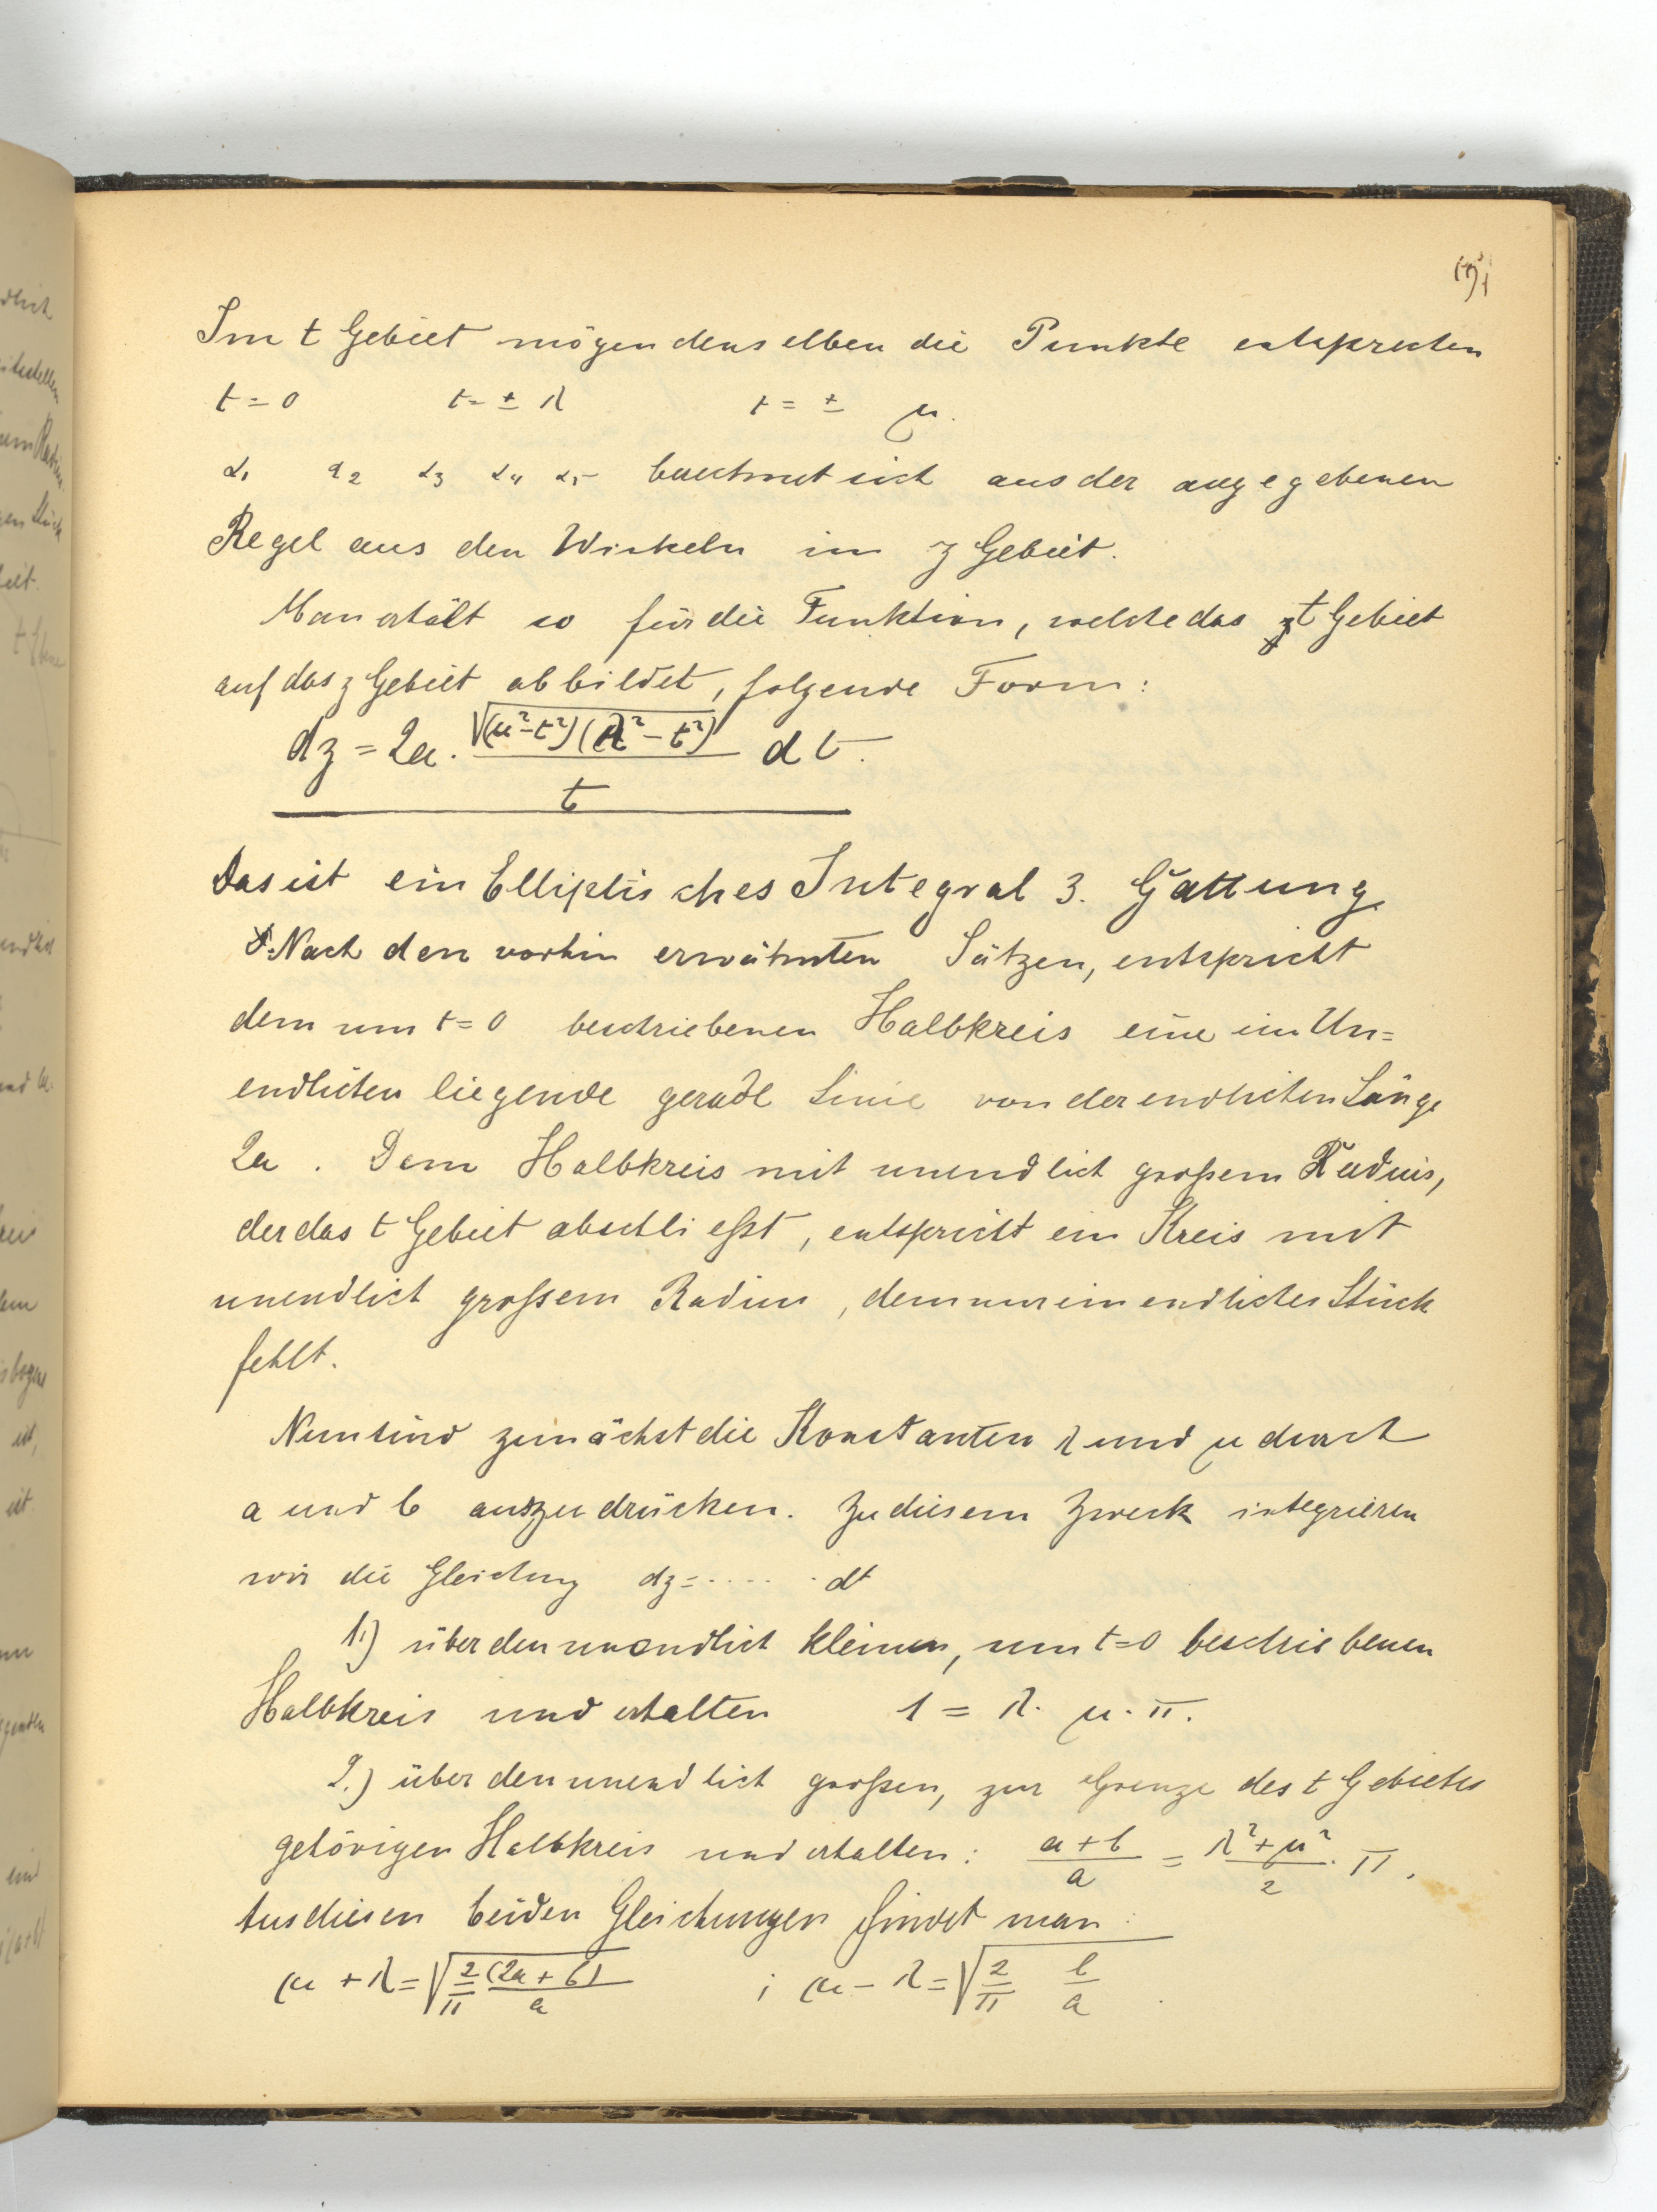 Im t Gebiet mögen denselben die Punkte entsprechen
t = 0 t = ± λ t = ± μ.
α1 α2 α3 α4 α5 berechnet sich aus der angegebenen
Regel aus den Winkeln im z Gebiet.
Man erhält so für die Funktion, welche das t Gebiet
auf das z Gebiet abbildet, folgende Form:
dz = 2a · √(μ²-t²)(λ²-t²) / t dt.
Das ist ein Elliptisches Integral 3. Gattung.
Nach den vorhin erwähnten Sätzen, entspricht
dem um t=0 beschriebenen Halbkreis eine im Un=
endlichen liegende gerade Linie von der endlichen Länge
2a. Dem Halbkreis mit unendlich großem Radius,
der das t Gebiet abschließt, entspricht ein Kreis mit
unendlich großem Radius, dem nur ein endliches Stück
fehlt.
Nun sind zunächst die Konstanten λ und μ durch
a und b auszudrücken. Zu diesem Zweck integrieren
wir die Gleichung dz = ..... dt
1.) über den unendlich kleinen, um t=0 beschriebenen
Halbkreis und erhalten 1 = λ · μ · π.
2.) über den unendlich großen, zur Grenze des t Gebietes
gehörigen Halbkreis und erhalten: (a+b)/a = (λ²+μ²)/2 · π.
Aus diesen beiden Gleichungen findet man:
μ + λ = √(2/π (2a+b)/a) ; μ - λ = √(2/π b/a).